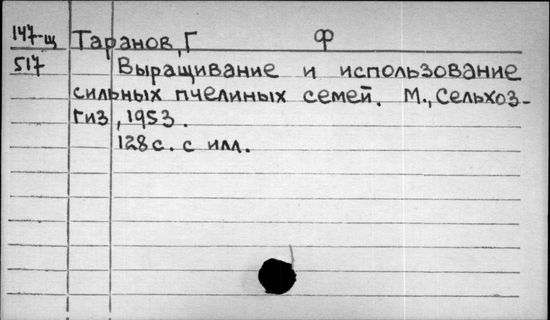 147-щ Таранов, Г Ф
517 Выращивание и использование
сильных пчелиных семей. М., Сельхоз-
гиз, 1953.
128 с. с илл.